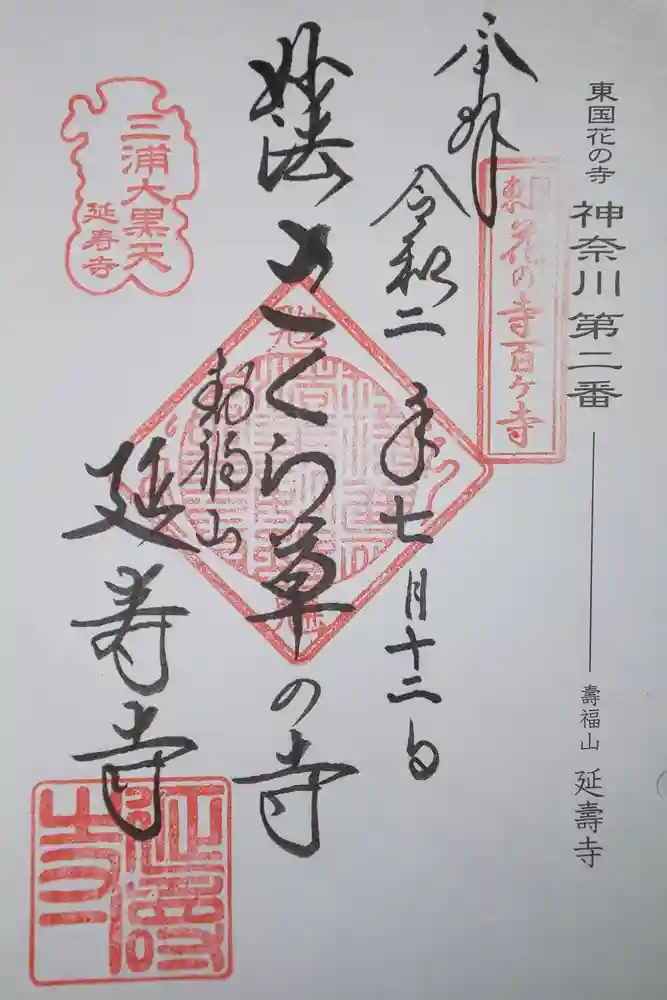 東国花の寺 神奈川第二番
壽福山 延壽寺
奉拝
東国花の寺百ケ寺
令和二年七月十二日
妙法 さくら草の寺
寿福山
延寿寺
三浦大黒天
延寿寺